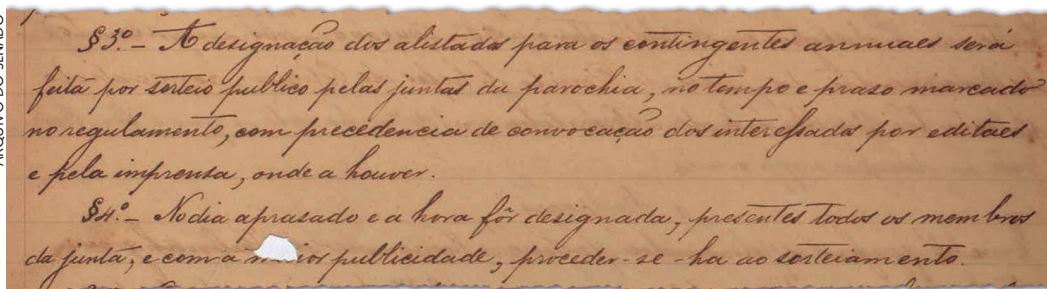 ARQUIVO DO SENADO
§3º.- A designação dos alistados para os contingentes annuaes será
feita por sorteio publico pelas juntas da parochia, no tempo e praso marcado
no regulamento, com precedencia de convocação dos interessados por editaes
e pela imprensa, onde a houver.
§4º.- No dia aprasado e a hora fôr designada, presentes todos os membros
da junta, e com a maior publicidade, proceder-se-ha ao sorteiamento.